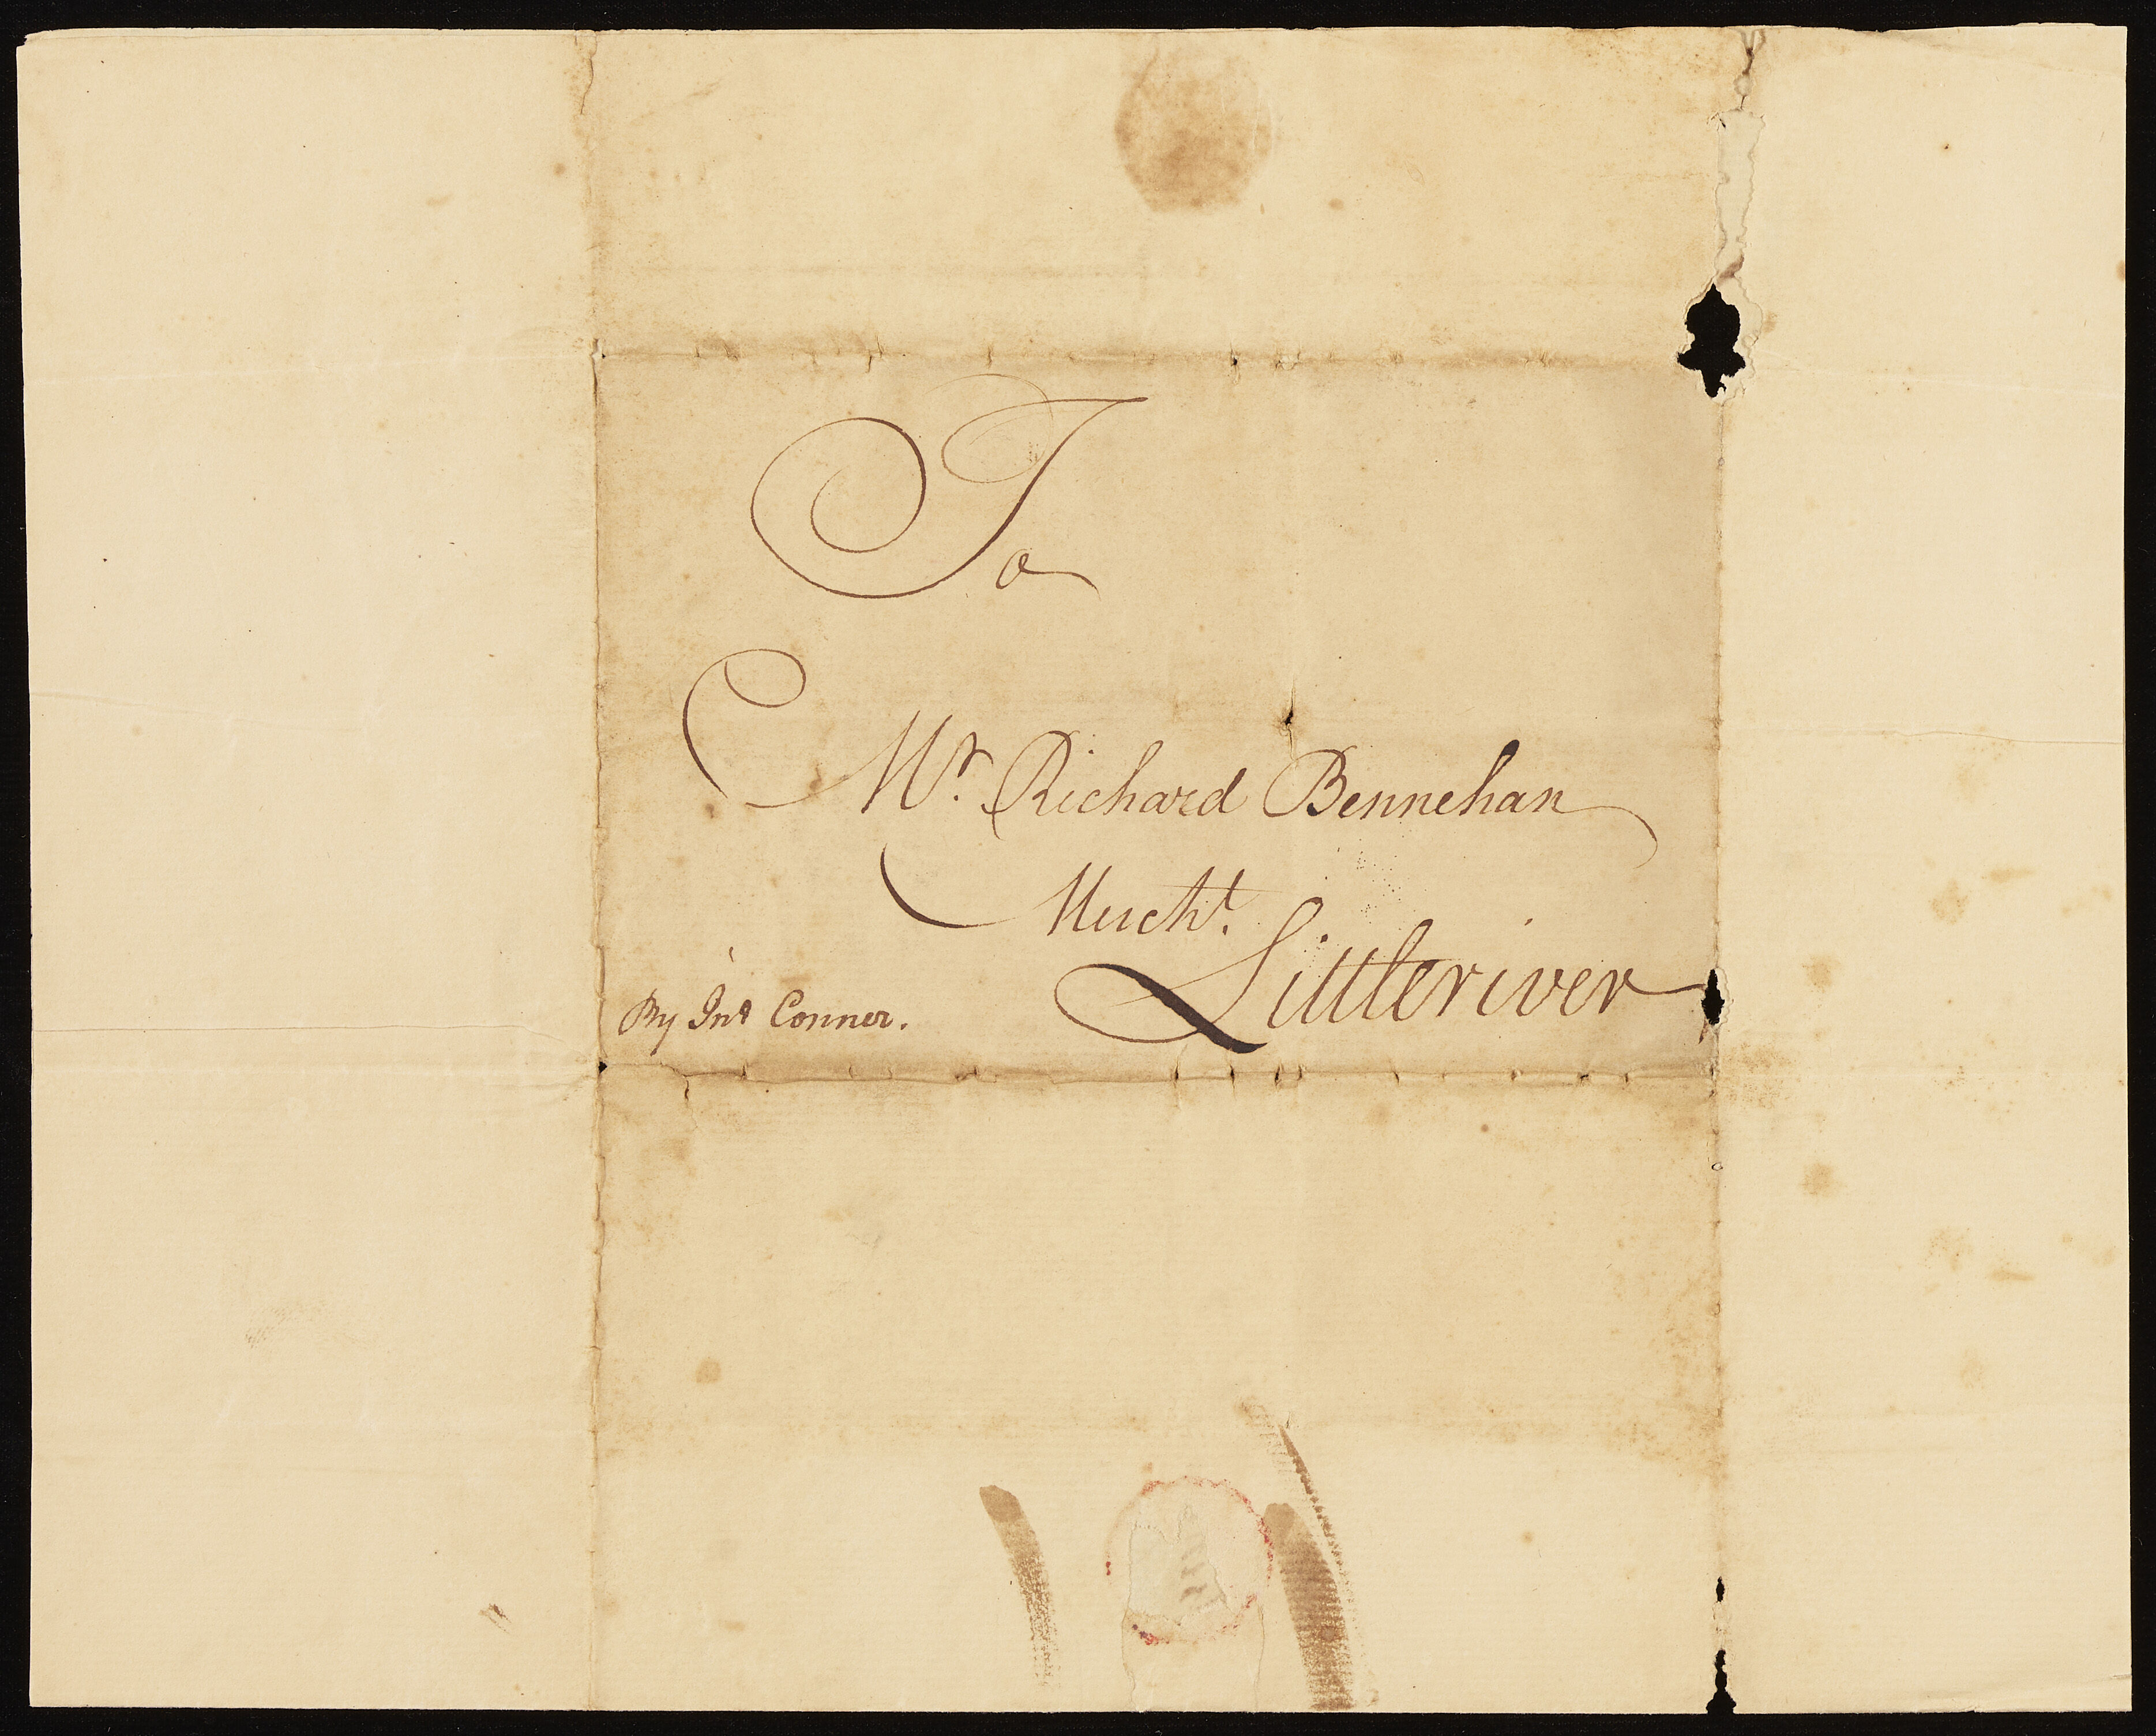 To
Mr. Richard Bennehan
Mercht.
Littleriver
By Jno Conner.